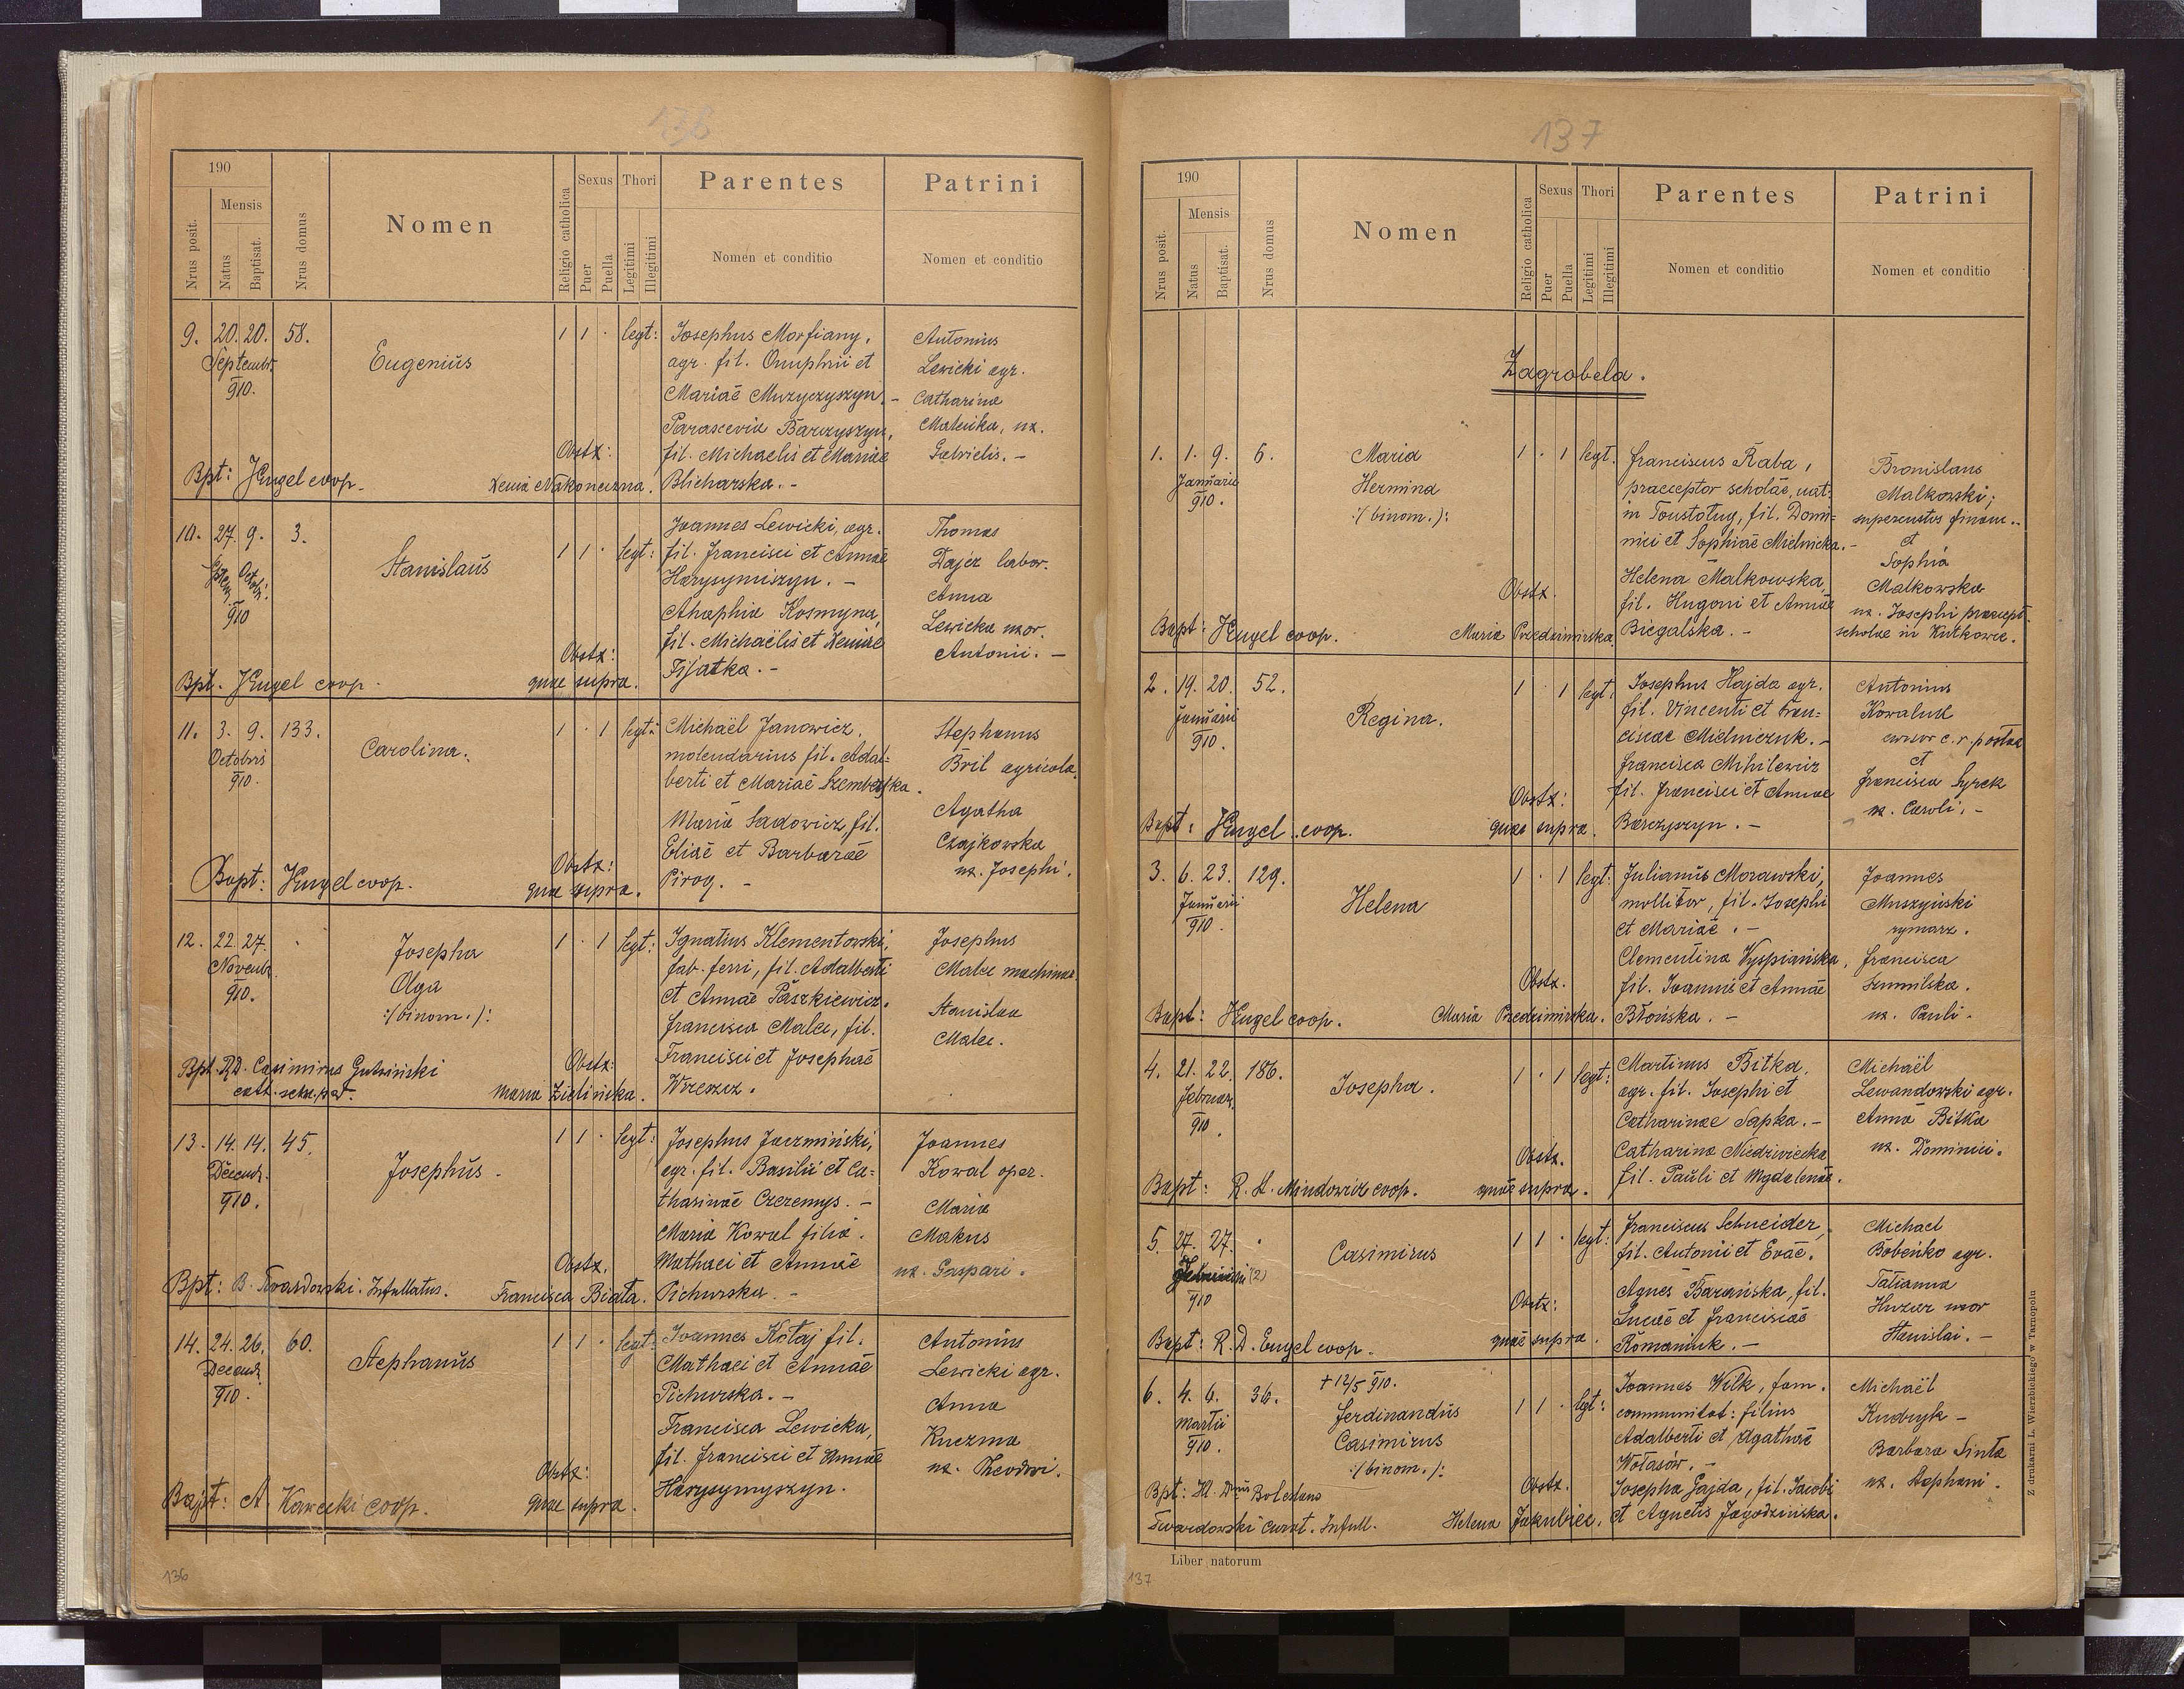 136
190
Nrus posit.
Mensis
Natus
Baptisat.
Nrus domus
Nomen
Religio catholica
Sexus
Puer
Puella
Thori
Legitimi
Illegitimi
Parentes
Nomen et conditio
Patrini
Nomen et conditio
9. 20. 20. 58.
Septembr.
910.
Eugenius
1 1 · legt:
Josephus Morfiany,
agr. fil. Onuphrii et
Mariae Muzyczyszyn. -
Parascevia Barczyszyn,
fil. Michaelis et Mariae
Blicharska. -
Antonius
Lewicki agr.
Catharina
ux.
Gabrielis. -
Obstx:
Xenia Nakoneczna.
Bpt: JEngel coop.
10. 27. 9. 3.
Octobr.
910
Stanislaus
1 1 · legt:
Joannes Lewicki, agr.
fil. Francisci et Annae
Harysymiszyn. -
Ahaphia Kosmyna,
fil. Michaëlis et Xeniae
Fijatka. -
Thomas
Dajez labor.
Anna
Lewicka uxor.
Antonii. -
Obstx:
quae supra.
Bpt. JEngel coop.
11. 3. 9. 133.
Octobris
910.
Carolina.
1 · 1 legt:
Michaël Janowicz,
molendarius fil. Adal=
berti et Mariae
Maria Sadowicz, fil.
Eliae et Barbarae
Pirog. -
Stephanus
Bril agricola.
Agatha
Czajkowska
ux. Josephi.
Obstx:
quae supra.
Bapt: JEngel coop.
12. 22. 27. ·
Novembr.
910.
Josepha
Olga
:/binom./:
1 · 1 legt:
Ignatius Klementowski,
fab. ferri, fil. Adalberti
et Annae Paszkiewicz.
Francisca Malec, fil.
Francisci et Josephae
Wrzeszcz.
Josephus
Malec
Stanislaa
Malec.
Obstx:
Maria Zielińska.
Bpt. RD. Casimirus
13. 14. 14. 45.
Decembr.
910.
Josephus.
1 1 · legt:
Josephus Jaczmiński,
agr. fil. Basilii et Ca=
tharinae Czeremys. -
Maria Kowal filia
Mathaei et Annae
Pichurska. -
Joannes
Kowal oper.
Maria
Makus
ux. Gaspari.
Obstx.
Francisca Biała.
Bpt: B. Twardowski. Infullatus.
14. 24. 26. 60.
Decembr.
910.
Stephanus
1 1 · legt:
Joannes Kołaj fil.
Mathaei et Annae
Pichurska. -
Francisca Lewicka,
fil. Francisci et Annae
Harysymyszyn.
Antonius
Lewicki agr.
Anna
Kuczma
ux. Theodori.
Obstx:
quae supra.
Bapt: A. Kawecki coop.
136
137
190
Nrus posit.
Mensis
Natus
Baptisat.
Nrus domus
Nomen
Religio catholica
Sexus
Puer
Puella
Thori
Legitimi
Illegitimi
Parentes
Nomen et conditio
Patrini
Nomen et conditio
Zagrobela.
1. 1. 9. 6.
Januarii
910.
Maria
Hermina
:/binom./:
1 · 1 legt.
Franciscus Raba,
praeceptor scholae, nat:
in Toustoług, fil. Domi=
nici et Sophiae Mielnicka. -
Helena Malkowska,
fil. Hugoni et Annae
Biegalska. -
Bronislaus
Malkowski;
et
Sophia
Malkowska
ux. Josephi praecept.
scholae in Kutkowce.
Obstx.
Maria Przedzimirska.
Bapt: JEngel coop.
2. 19. 20. 52.
Januarii
910.
Regina.
1 · 1 legt.
Josephus Hajda agr.
fil. Vincenti et Fran=
ciscae Mielniczuk. -
Francisca Mihilewicz
fil. Francisci et Annae
Barczyszyn. -
Antonius
Kowaluk
cursor c. r. postae
et
Francisca Syrek
ux. Caroli. -
Obstx:
quae supra.
Bapt: JEngel coop.
3. 6. 23. 129.
Januarii
910.
Helena
1 · 1 legt:
Julianus Morawski,
mollitor, fil. Josephi
et Mariae. -
Clementina Wyspiańska,
fil. Joannis et Annae
Błońska. -
Joannes
Muszyński
rymarz.
Francisca
ux. Pauli.
Obstx.
Maria Przedzimirska.
Bapt: JEngel coop.
4. 21. 22. 186.
Februar.
910.
Josepha.
1 · 1 legt:
Martinus Bitka,
agr. fil. Josephi et
Catharinae Sapka. -
Catharina Niedzwiecka
fil. Pauli et Magdalenae.
Michaël
Lewandowski agr.
Anna Bitka
ux. Dominici.
Obstx.
quae supra.
Bapt: R. L. Mindowicz coop.
5. 27. 27. ·
(2)
910
Casimirus
1 1 · legt:
Franciscus Schneider,
fil. Antonii et Evae.
Agnes Barańska, fil.
Lucae et Franciscae
Romaniuk. -
Michael
Bobeńko agr.
Tatianna
Huzar uxor
Stanislai. -
Obstx:
quae supra.
Bapt: R. D. Engel coop.
6. 4. 6. 36.
Martii
910.
+ 12/5 910.
Ferdinandus
Casimirus
:/binom./:
1 1 · legt:
Joannes Wilk, fam.
communitat: filius
Adalberti et Agathae
Wołasów. -
Josepha Gajda, fil. Jacobi
et Agnetis Jagodzińska.
Michaël
Kudryk -
Barbara Sinta
ux. Stephani.
Obstx.
Helena Jakubiec.
Bpt: Boleslaus
Twardowski Infull.
Liber natorum
Z drukarni L. Wierzbickiego w Tarnopolu
137